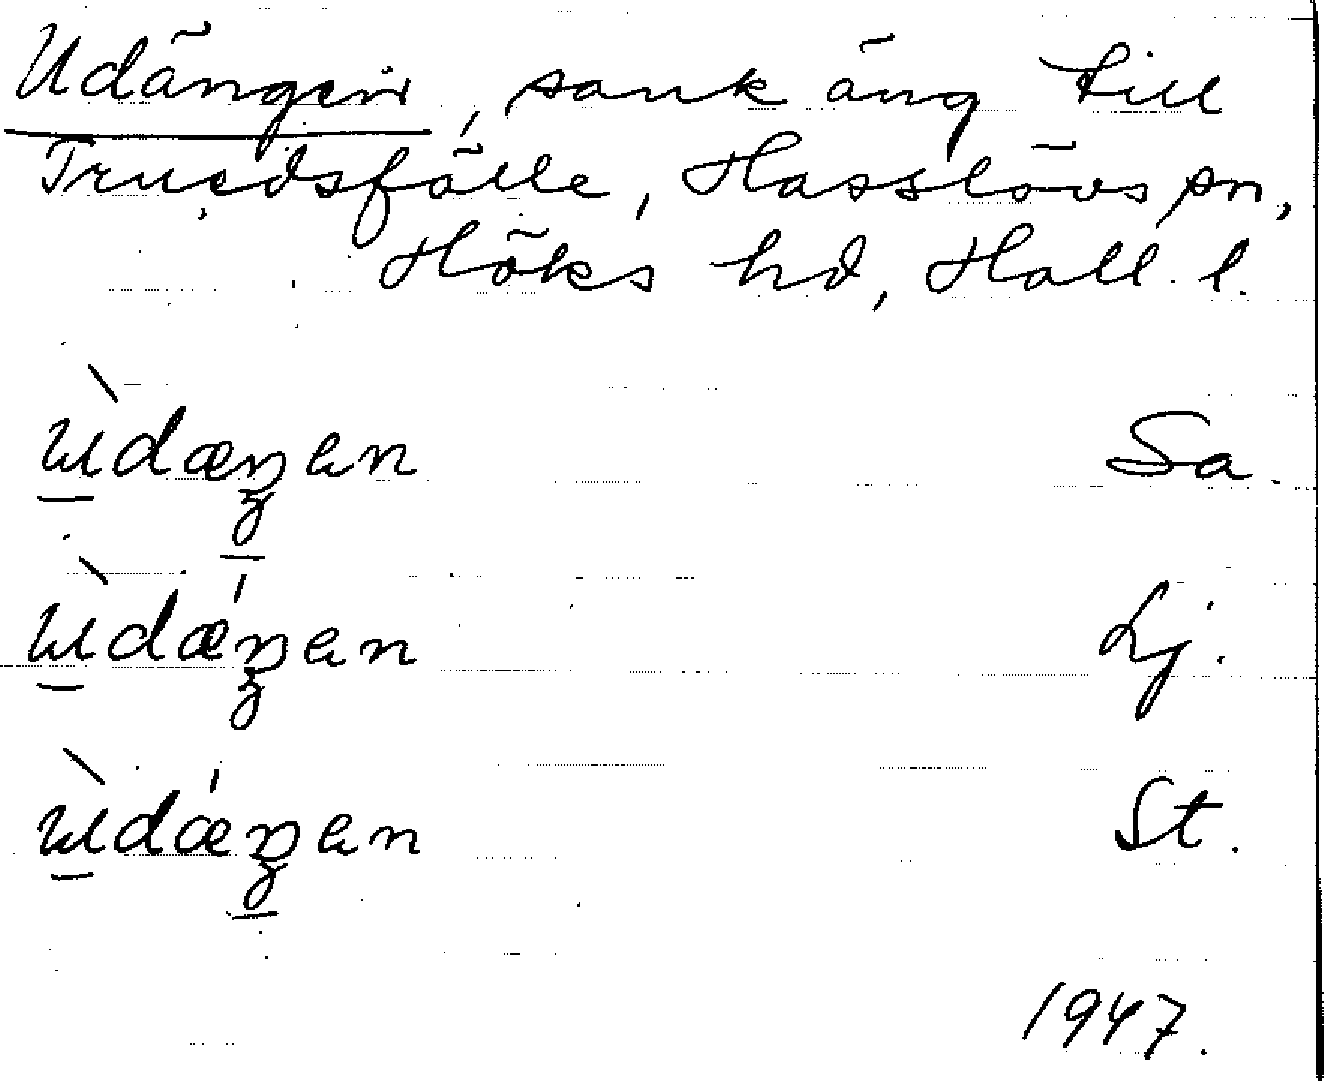 Udängen, sank äng till
Truedsfälle, Hasslövs sn,
Höks hd, Hall. l.
ùdæŋen Sa.
ùdǽŋen Lj.
ùdǽŋen St.
1947.